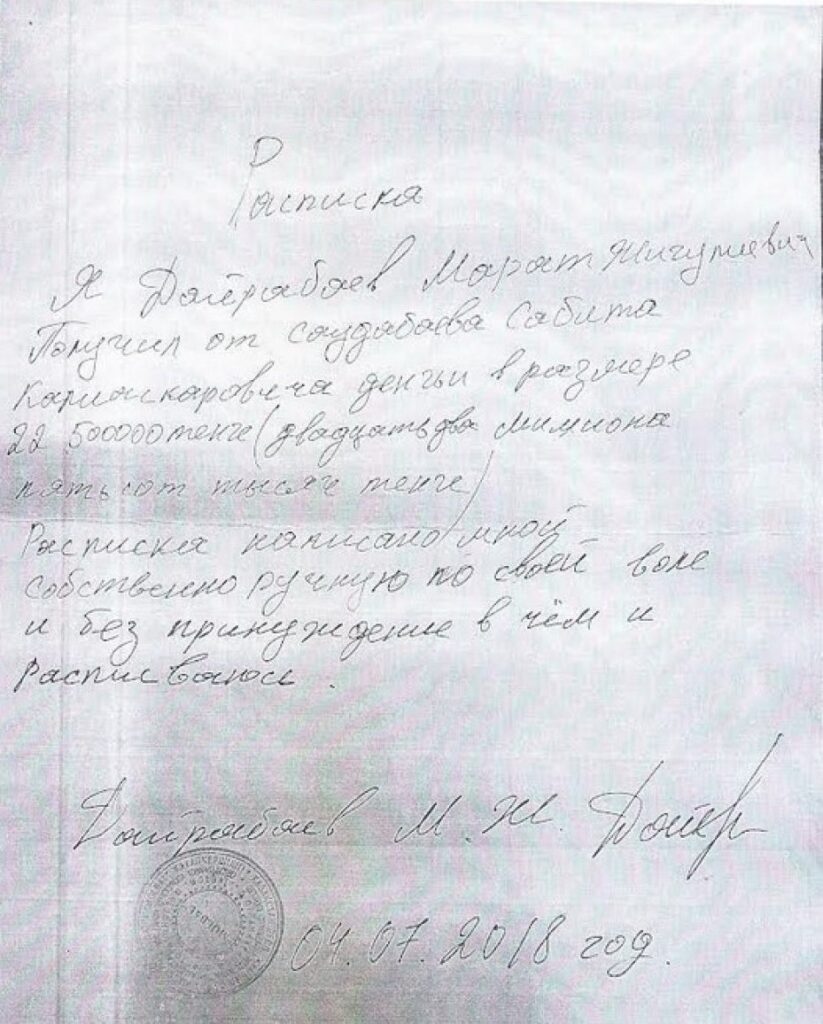 Расписка
Я Дайрабаев Марат Жигулиевич
Получил от Саудабаева Сабита
Капиаскаровича денгьи в размере
22 500000 тенге (двадцать два миллиона
пятьсот тысяче тенге)
Расписка написано мной
собственно ручную по своей воле
и без принуждение в чём и
расписваюсь.
Дайрабаев М.Ж. Дайр
04.07.2018 год.